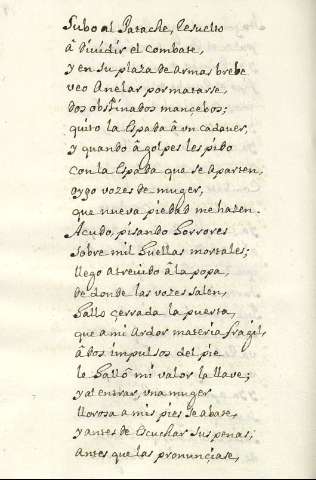 Subo al Patache, resuelto
â dividir el combate,
y en su plaza de armas brebe
veo Anelar por matarse,
dos obstinados mançebos;
quito la Espada â vn cadauer,
y quando â golpes les pido
con la Espada que se aparten,
oygo vozes de muger,
que nueva piedad me hazen.
Acudo, pisando horrores
sobre mil huellas mortales;
llego atreuido â la popa,
de donde las vozes salen,
hallo çerrada la puerta,
que a mi Ardor materia fragil,
â dos impulsos del pie
le hallô mi valor la llaue;
y al entrar, vna muger
llorosa a mis pies se abate,
y antes de Escuchar sus penas,
Antes que las pronunçiase,